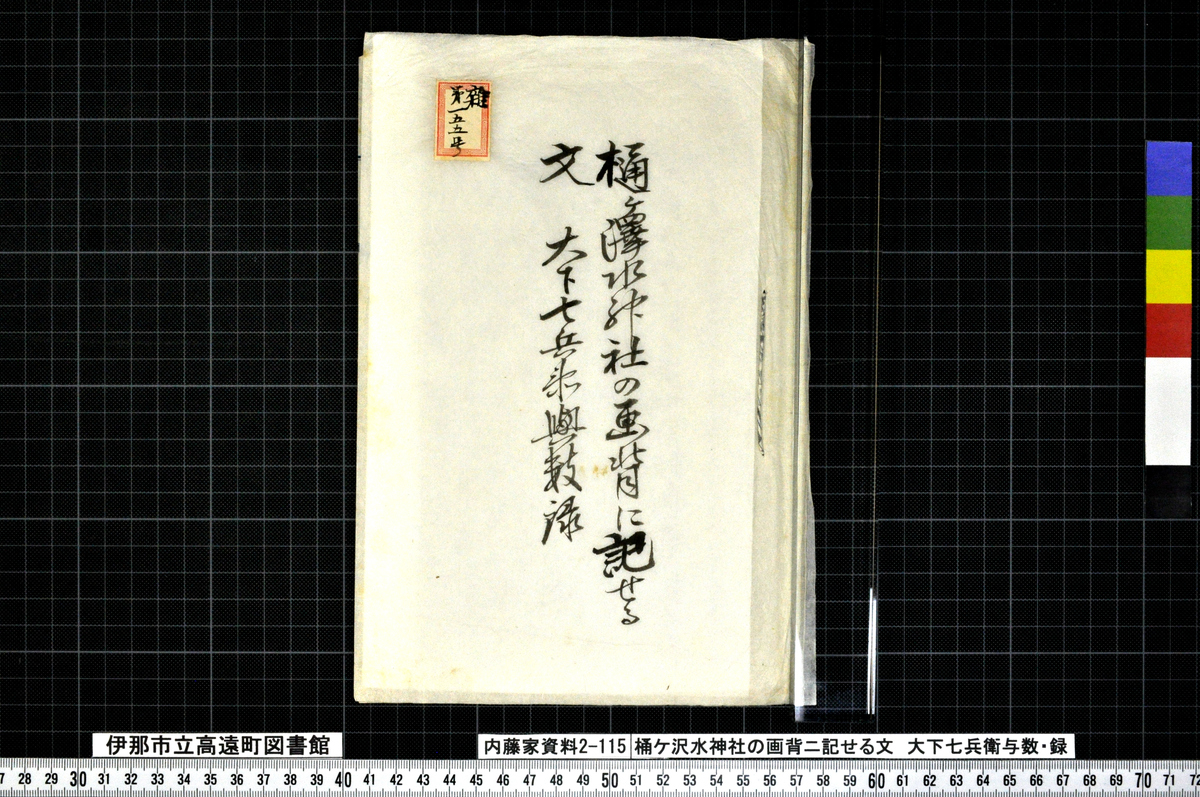 雜
第一五五号
樋ヶ澤水神社の画背に記せる
文 大下七兵衛與数録
伊那市立高遠町図書館
内藤家資料2-115 桶ケ沢水神社の画背ニ記せる文 大下七兵衛与数・録
7 28 29 30 31 32 33 34 35 36 37 38 39 40 41 42 43 44 45 46 47 48 49 50 51 52 53 54 55 56 57 58 59 60 61 62 63 64 65 66 67 68 69 70 71 72